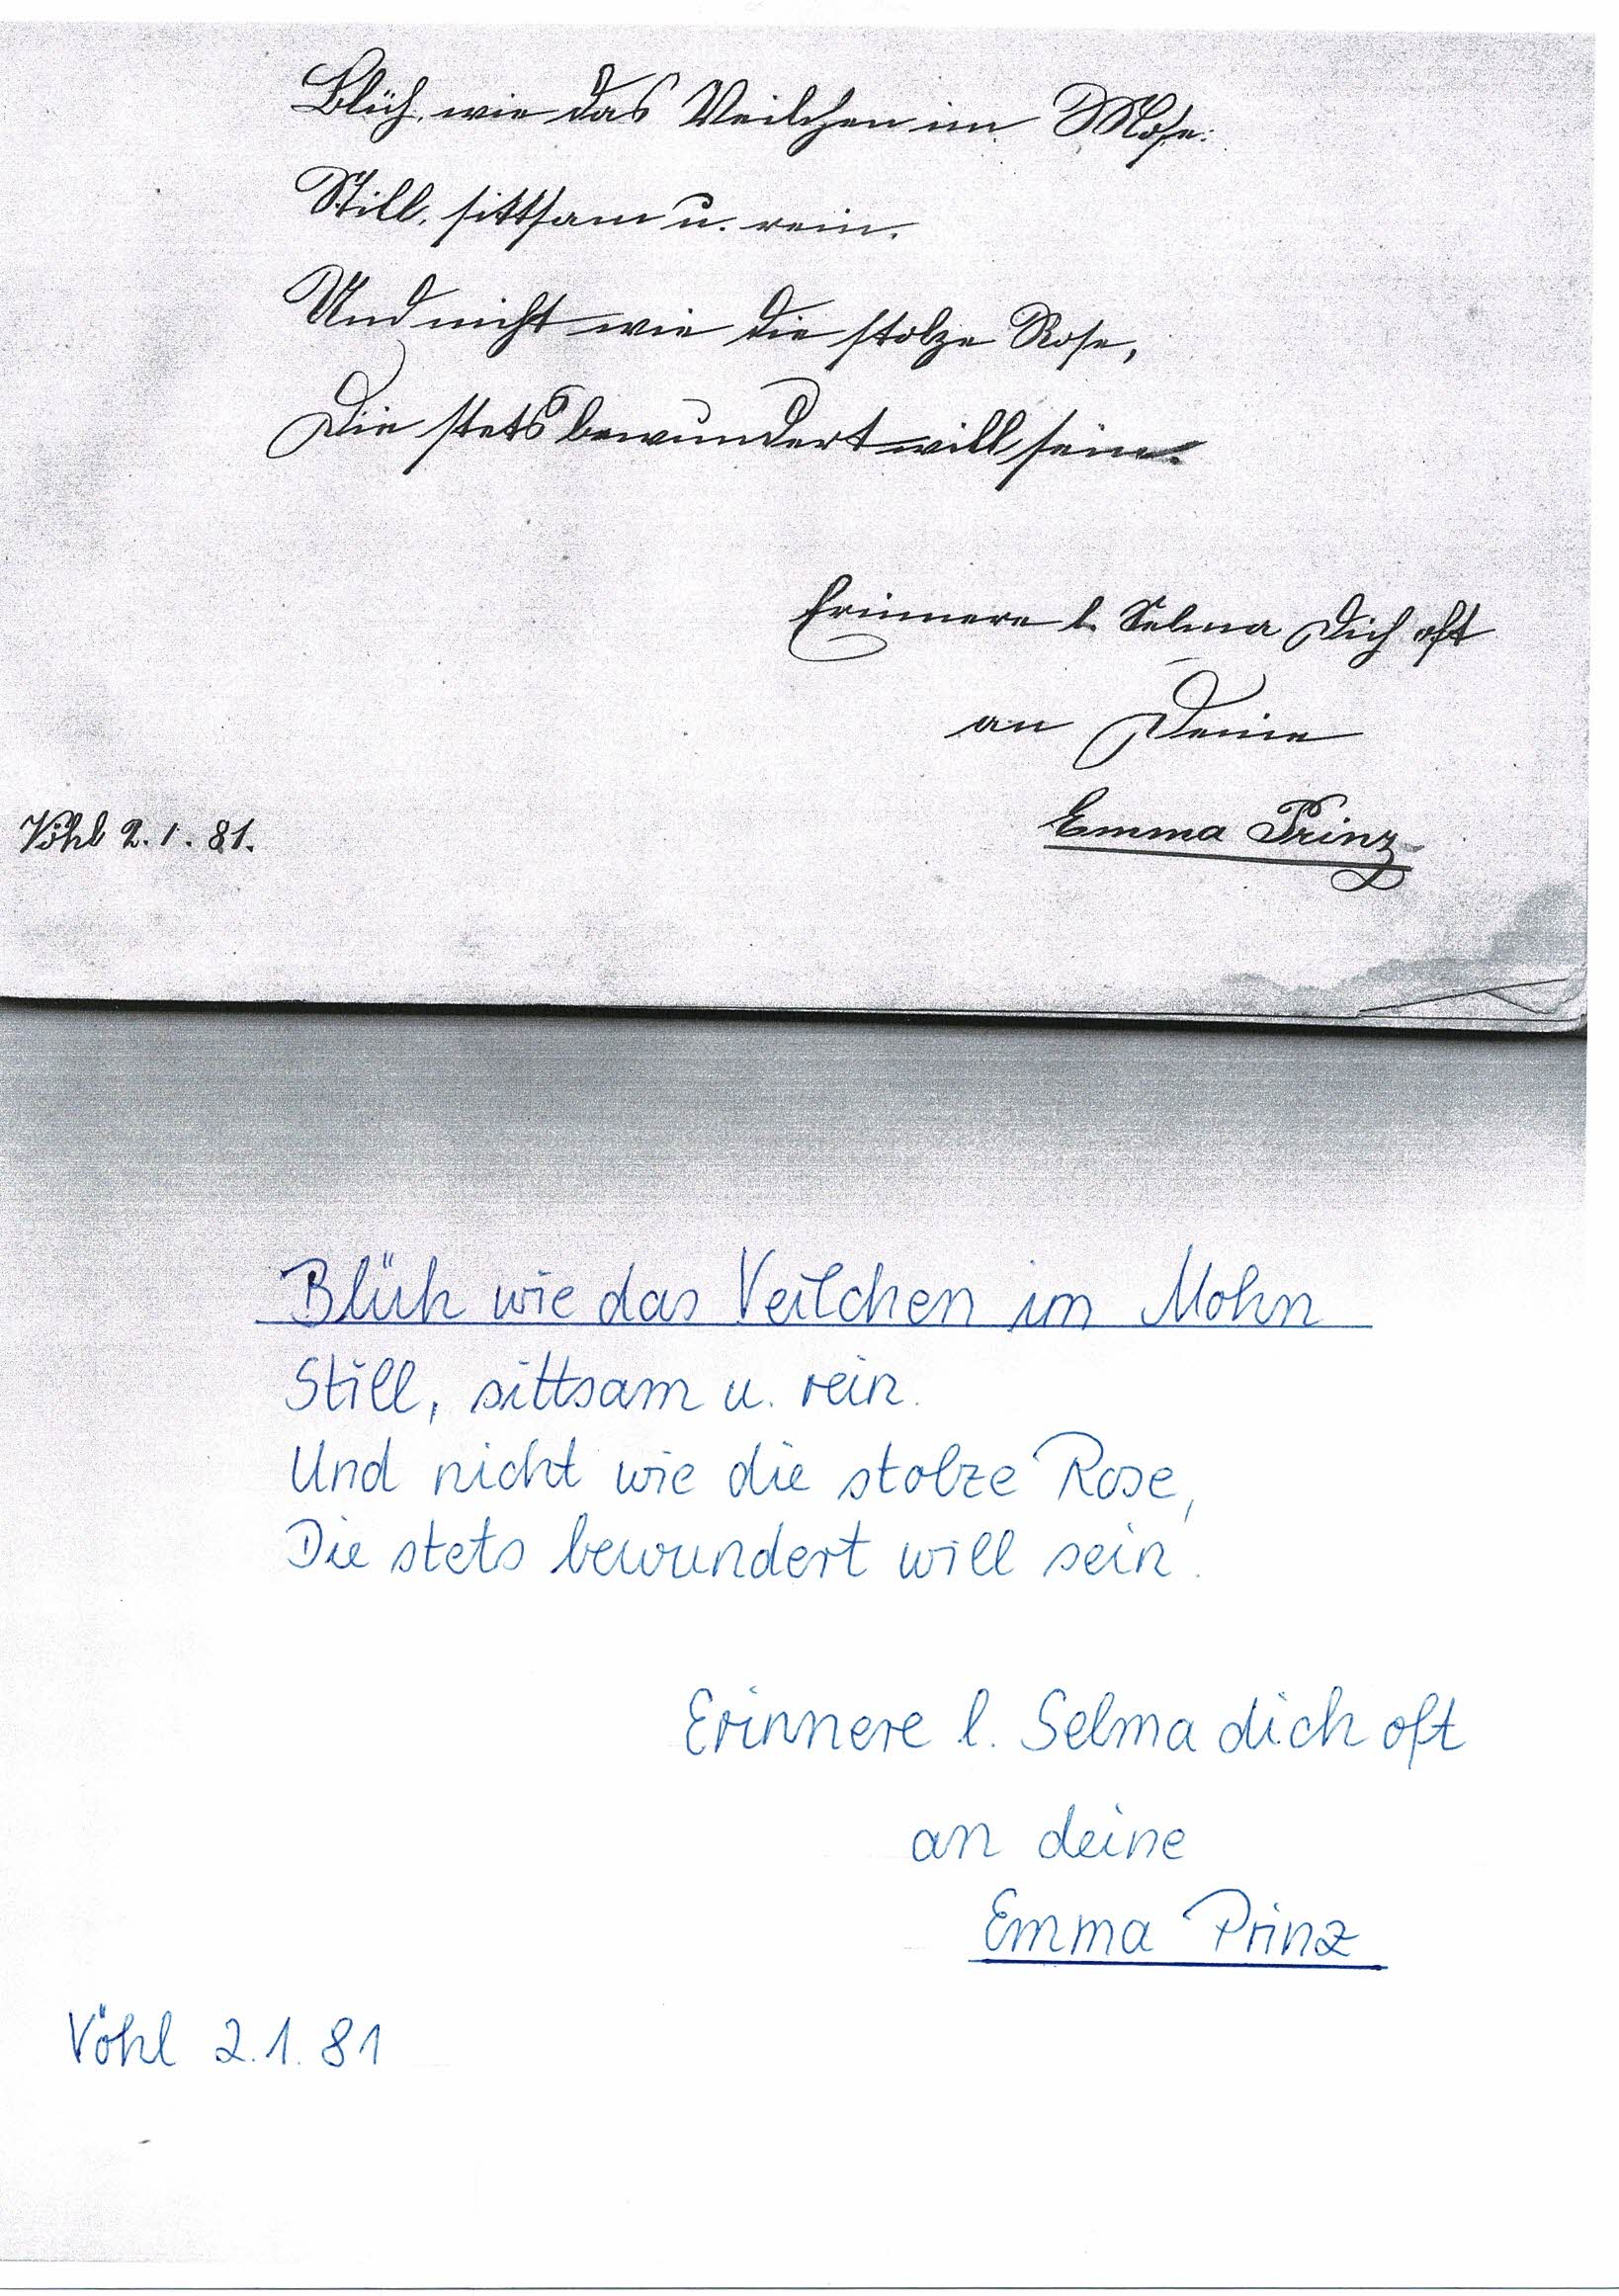 Blüh, wie das Veilchen im Mose:
Still, sittsam u. rein.
Und nicht wie die stolze Rose,
Die stets bewundert will sein.
Erinnere l. Selma Dich oft
an Deine
Emma Prinz
Vöhl 2.1.81.
Blüh wie das Veilchen im Mohn
Still, sittsam u. rein.
Und nicht wie die stolze Rose,
Die stets bewundert will sein.
Erinnere l. Selma dich oft
an deine
Emma Prinz
Vöhl 2.1.81